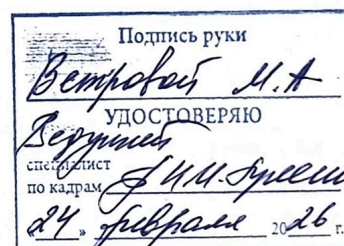 Подпись руки
Ветровой М.А
УДОСТОВЕРЯЮ
Ведущий
специалист
по кадрам И.И.
"24" февраля 2026 г.